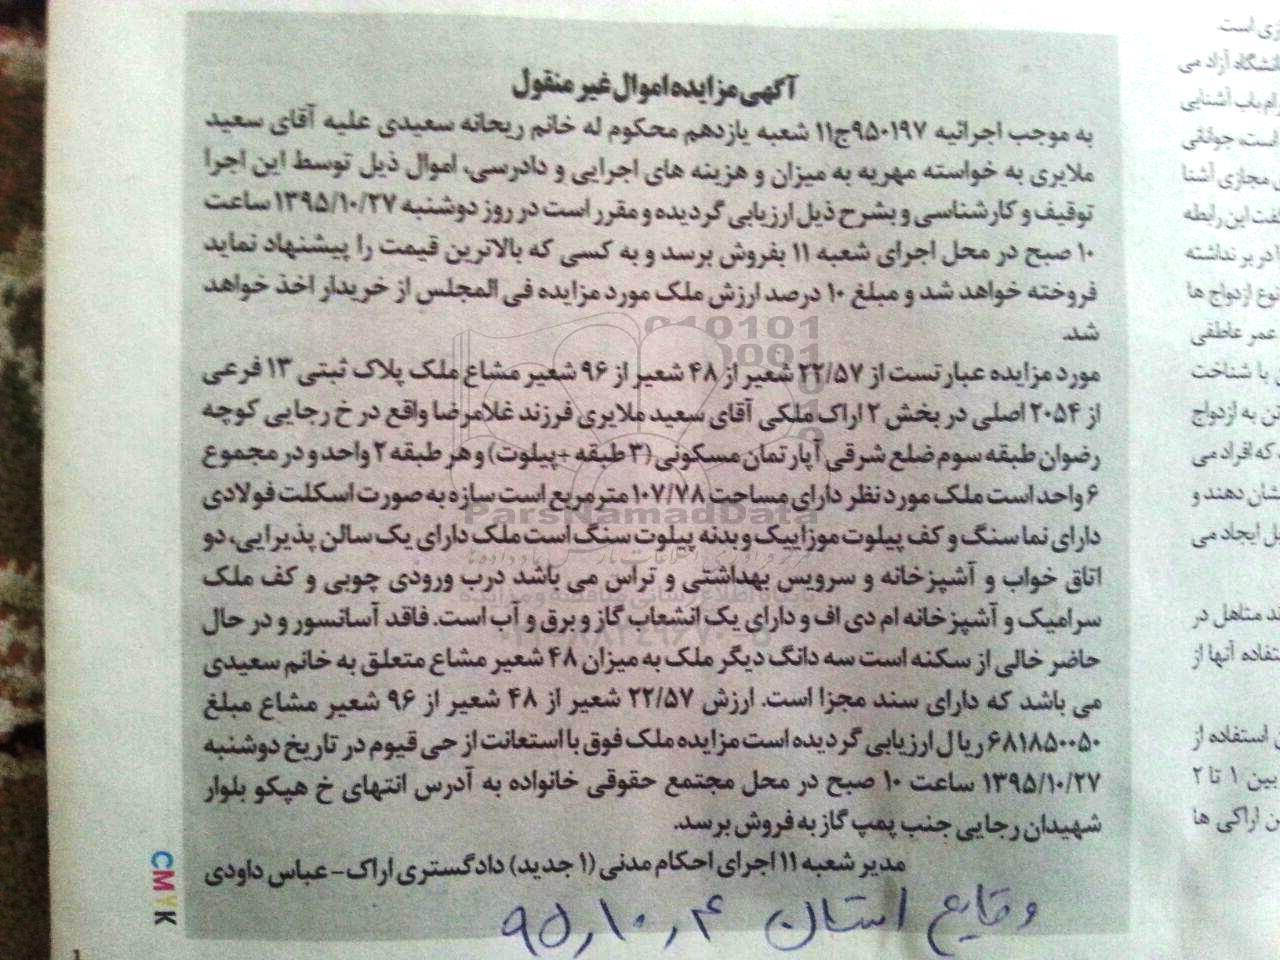 آگهی مزایده اموال غیر منقول
به موجب اجرائیه ۹۵۰۱۹۷ج۱۱ شعبه یازدهم محکوم له خانم ریحانه سعیدی علیه آقای سعید
ملایری به خواسته مهریه به میزان و هزینه های اجرایی و دادرسی، اموال ذیل توسط این اجرا
توقیف و کارشناسی و بشرح ذیل ارزیابی گردیده و مقرر است در روز دوشنبه ۱۳۹۵/۱۰/۲۷ ساعت
۱۰ صبح در محل اجرای شعبه ۱۱ بفروش برسد و به کسی که بالاترین قیمت را پیشنهاد نماید
فروخته خواهد شد و مبلغ ۱۰ درصد ارزش ملک مورد مزایده فی المجلس از خریدار اخذ خواهد
شد.
مورد مزایده عبارتست از ۲۲/۵۷ شعیر از ۴۸ شعیر از ۹۶ شعیر مشاع ملک پلاک ثبتی ۱۳ فرعی
از ۲۰۵۴ اصلی در بخش ۲ اراک ملکی آقای سعید ملایری فرزند غلامرضا واقع در خ رجایی کوچه
رضوان طبقه سوم ضلع شرقی آپارتمان مسکونی (۳ طبقه +پیلوت) و هر طبقه ۲ واحد و در مجموع
۶ واحد است ملک مورد نظر دارای مساحت ۱۰۷/۷۸ متر مربع است سازه به صورت اسکلت فولادی
دارای نما سنگ و کف پیلوت موزاییک و بدنه پیلوت سنگ است ملک دارای یک سالن پذیرایی، دو
اتاق خواب و آشپزخانه و سرویس بهداشتی و تراس می باشد درب ورودی چوبی و کف ملک
سرامیک و آشپزخانه ام دی اف و دارای یک انشعاب گاز و برق و آب است. فاقد آسانسور و در حال
حاضر خالی از سکنه است سه دانگ دیگر ملک به میزان ۴۸ شعیر مشاع متعلق به خانم سعیدی
می باشد که دارای سند مجزا است. ارزش ۲۲/۵۷ شعیر از ۴۸ شعیر از ۹۶ شعیر مشاع مبلغ
۶۸۱۸۵۰۰۵۰ ریال ارزیابی گردیده است مزایده ملک فوق با استعانت از حی قیوم در تاریخ دوشنبه
۱۳۹۵/۱۰/۲۷ ساعت ۱۰ صبح در محل مجتمع حقوقی خانواده به آدرس انتهای خ هپکو بلوار
شهیدان رجایی جنب پمپ گاز به فروش برسد.
مدیر شعبه ۱۱ اجرای احکام مدنی (۱ جدید) دادگستری اراک- عباس داودی
وقایع استان ۹۵٫۱۰٫۴
CMYK
1
ParsNamadData
زی است.
انشگاه آزاد می
ام باب آشنایی
است، جوانانی
ی مجازی آشنا
فت این رابطه
ا در بر نداشته
وع ازدواج ها
عمر عاطفی
با شناخت
ن به ازدواج
که افراد می
شان دهند و
ل ایجاد می
د متاهل در
تفاده آنها از
استفاده از
بین ۱ تا ۲
ن اراکی ها